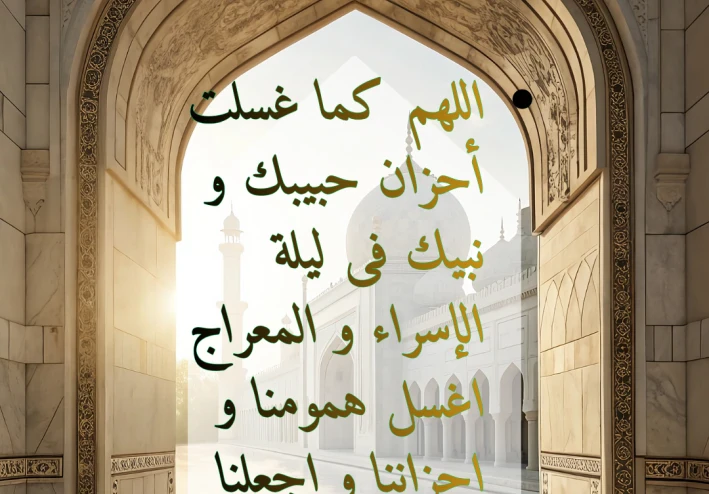 اللهم كما غسلت
أحزان حبيبك و
نبيك فى ليلة
الإسراء و المعراج
اغسل همومنا و
احزاننا و اجعلنا